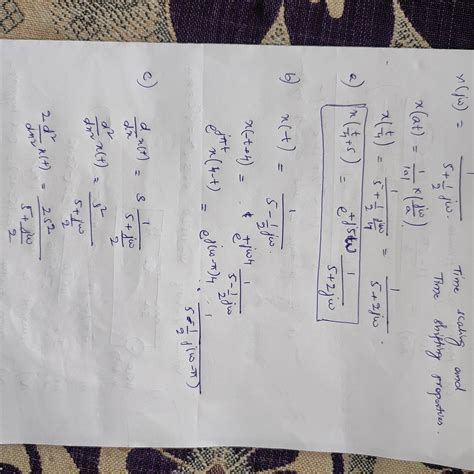 X(jω) = 1/(5+½jω)
Time scaling and
Time shifting properties.
x(at) = 1/|a| X(jω/a)
a) x(t/4) = 1/(5+½jω4) = 1/(5+2jω)
x(t/4+5) = e^(+j5ω) 1/(5+2jω)
b) x(-t) = 1/(5-½jω)
x(-t+4) = e^(+jω4) 1/(5-½jω)
e^(jπt) x(4-t) = e^(j(ω-π)4) 1/(5-½j(ω-π))
c) d/dt x(t) = S 1/(5+jω/2)
d²/dt² x(t) = S²/(5+jω/2)
2 d²/dt² x(t) = 2S²/(5+jω/2)